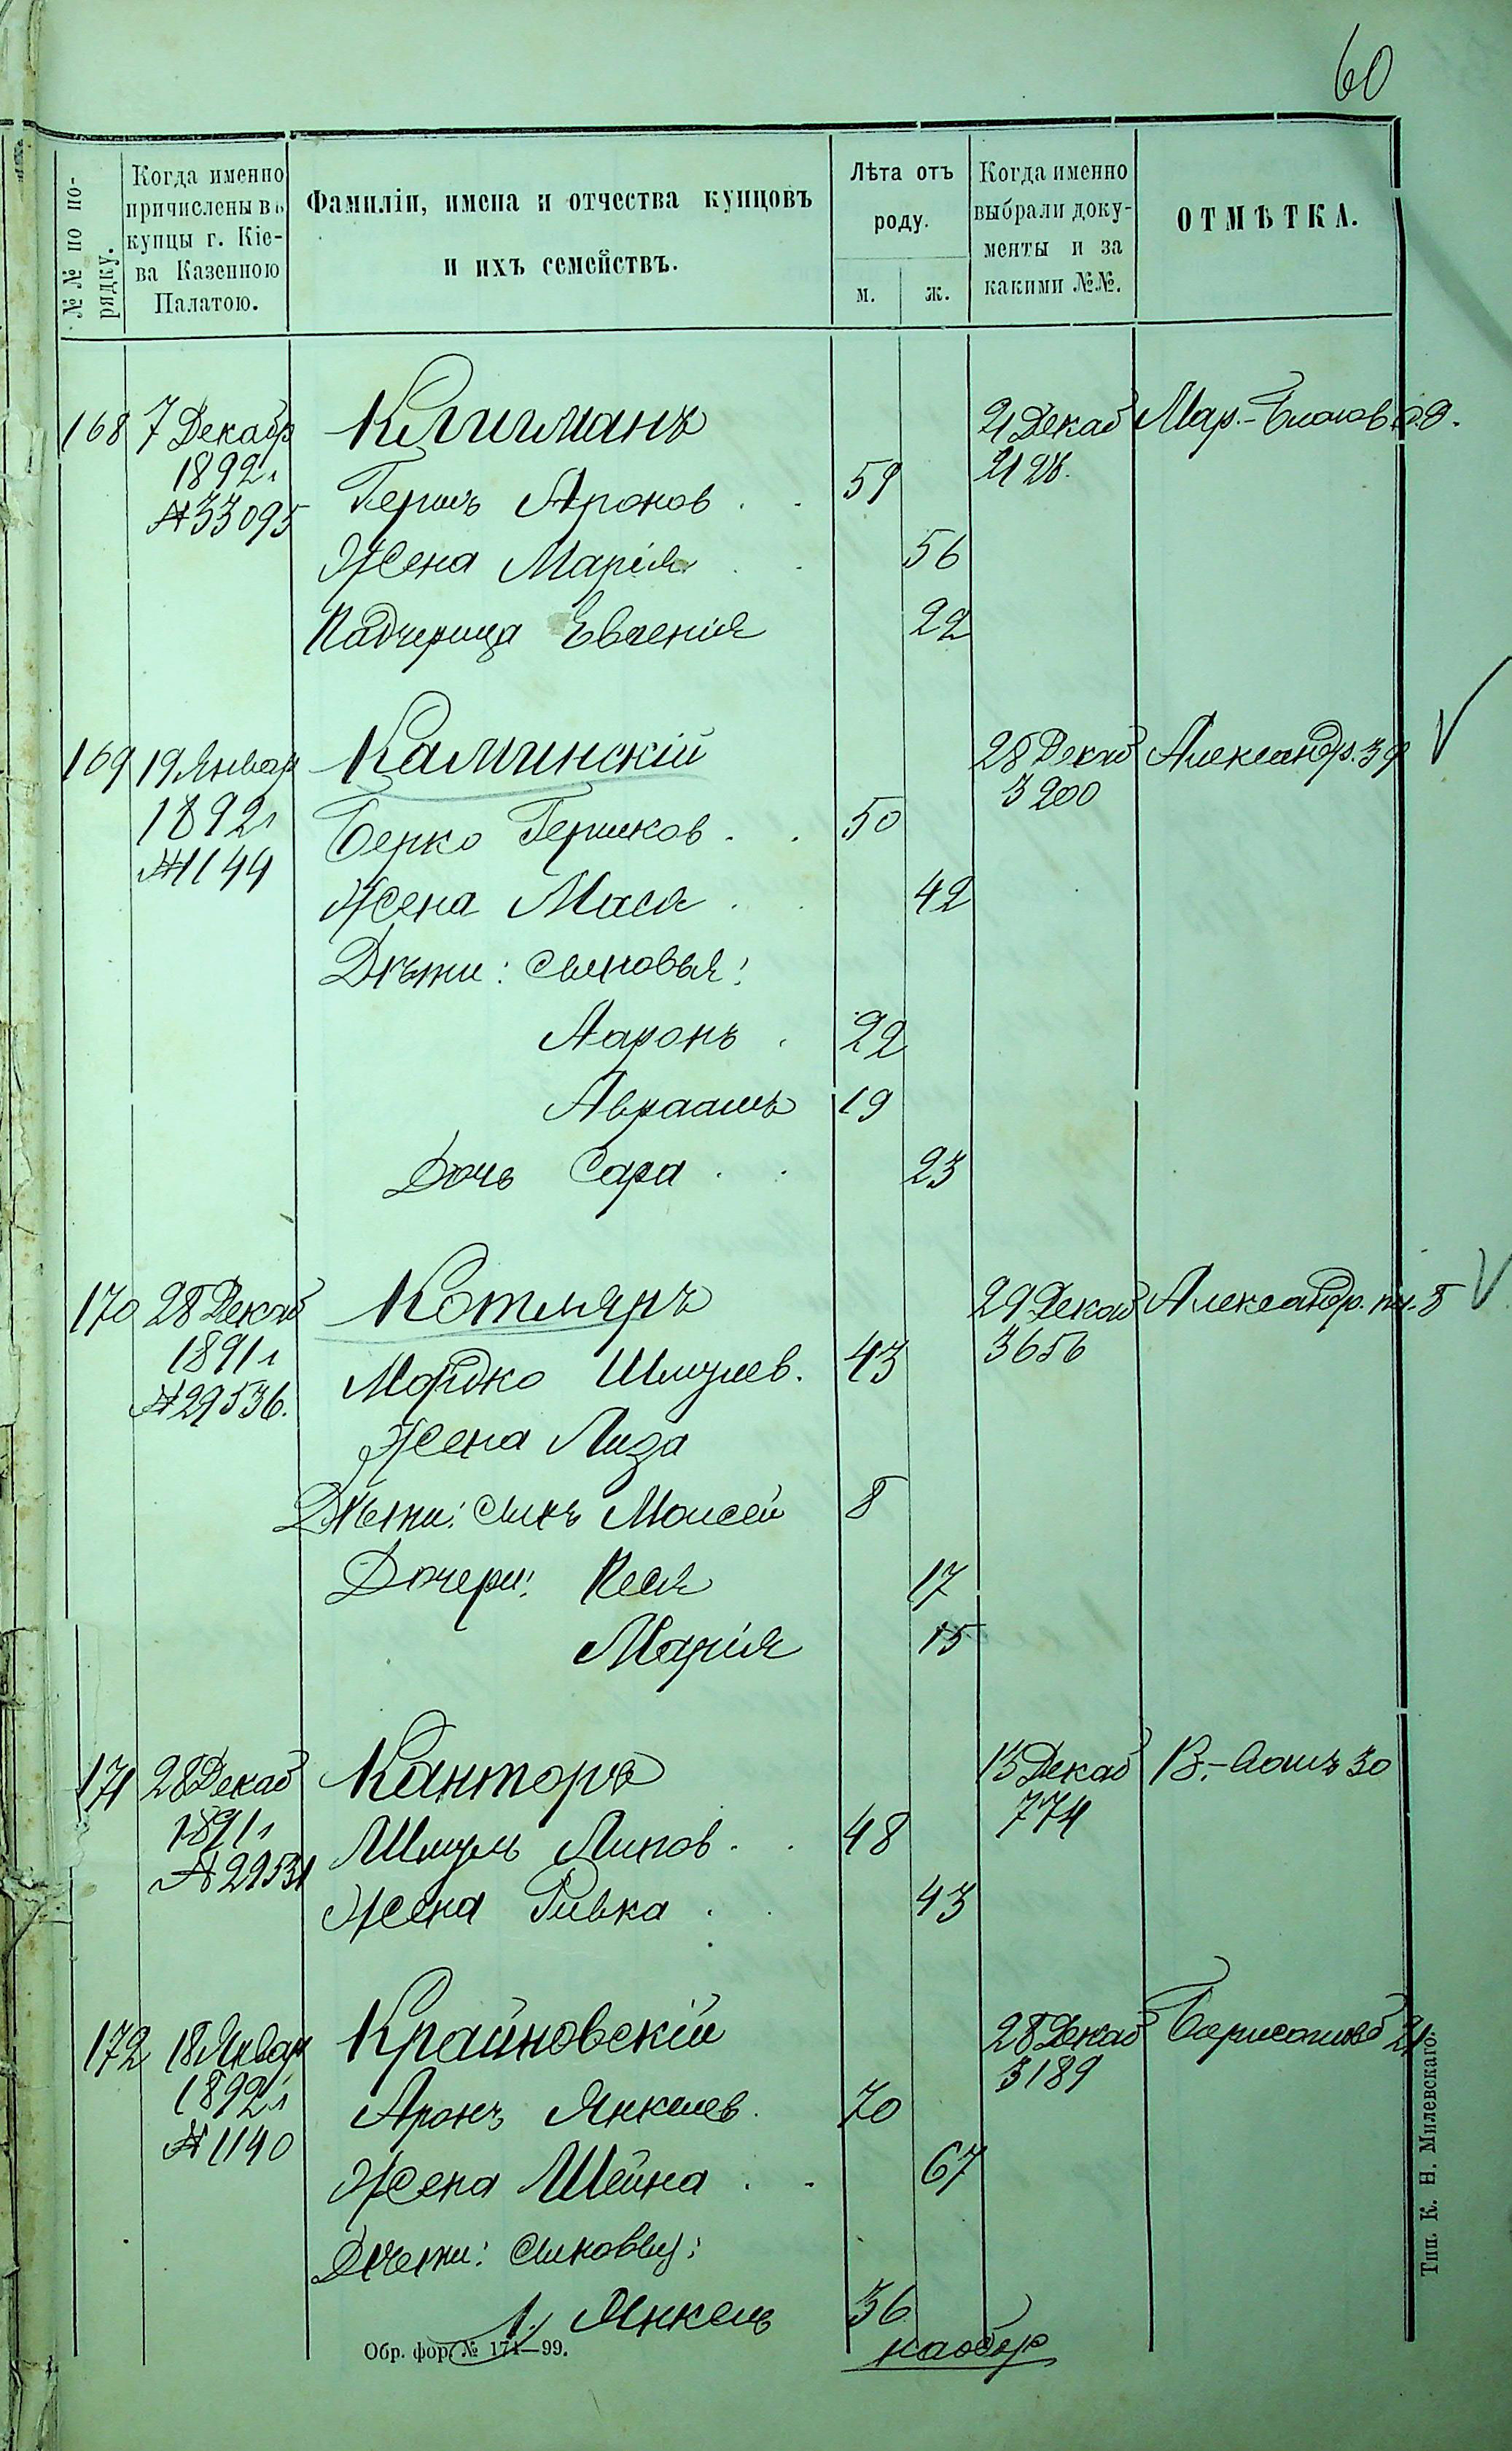 60
№№ по по-
рядку.
Когда именно
причислены въ
купцы г. Кіе-
ва Казенною
Палатою.
Фамиліи, имена и отчества купцовъ
и ихъ семействъ.
Лѣта отъ
роду.
м. ж.
Когда именно
выбрали доку-
менты и за
какими №№.
ОТМѢТКА.
168 7 Декабр Клигманъ 21 Декаб Мар.-Благов.
1892г 2128.
№33095 Гершъ Аронов 59
Жена Марія 56
Падчерица Евгенія 22
169 19 Январ Калминскій 28 Декаб Александр. 39
1892г 3200
Берко Гершков 50
№1144
Жена Мася 42
Дѣти: сыновья:
Ааронъ 22
Авраамъ 19
Дочь Сара 23
170 28 Декаб Котляръ 29 Декаб Александр. пл. 8
1891г 3656
Мордко Шмулев. 43
№29536.
Жена Лиза
Дѣти: сынъ Моисей 8
Дочери: Песя 17
Марія 15
171 28 Декаб Канторъ 15 Декаб В.-Васил 30
1891г 774
Шмуль Липов 48
№29531
Жена Ривка 43
172 18 Январ Крайновскій 28 Декаб Борисоглеб 21
1892г 3189
Аронъ Янкелев 70
№1140
Жена Шейна 67
Дѣти: сыновья:
1. Янкель 36
наобор
Обр. фор. № 171—99.
Тип. К. Н. Милевскаго.